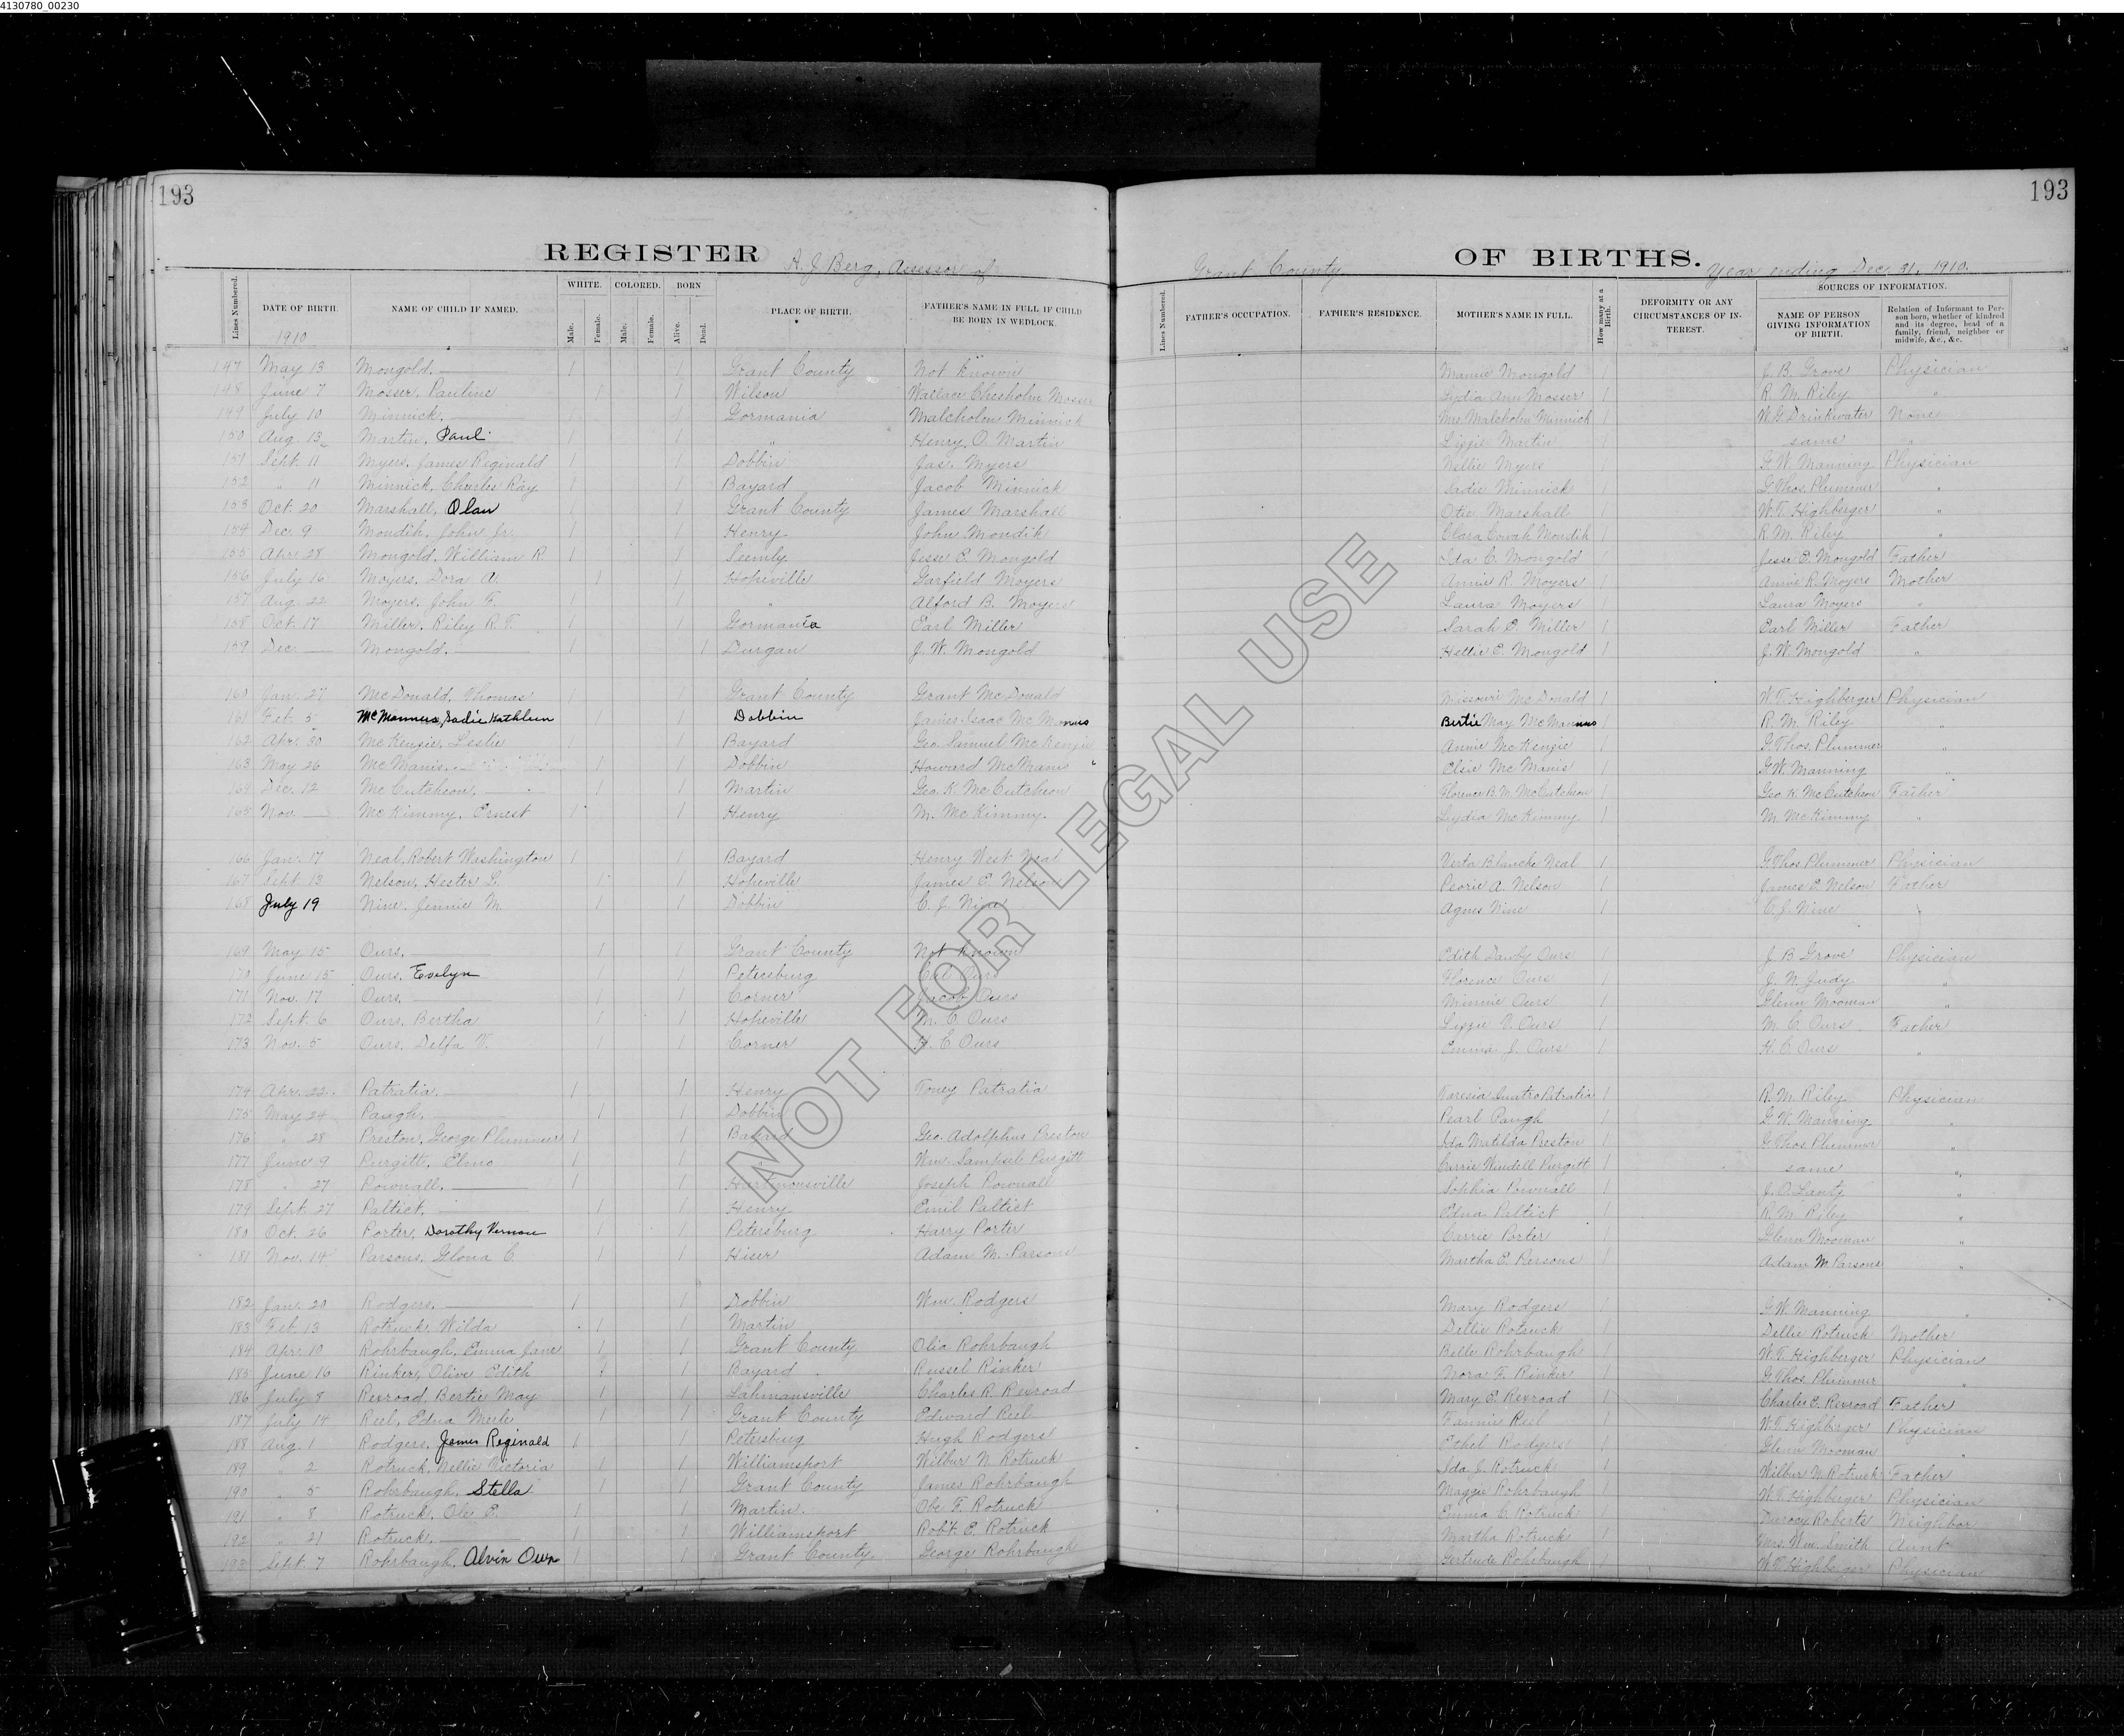 4130780_00230
193
193
REGISTER A. J. Berg, Assessor of
Grant County OF BIRTHS. Year ending Dec. 31, 1910.
Lines Numbered. DATE OF BIRTH. NAME OF CHILD IF NAMED. WHITE. COLORED. BORN PLACE OF BIRTH. FATHER'S NAME IN FULL IF CHILD BE BORN IN WEDLOCK.
Male. Female. Male. Female. Alive. Dead.
1910
Lines Numbered. FATHER'S OCCUPATION. FATHER'S RESIDENCE. MOTHER'S NAME IN FULL. How many at a Birth. DEFORMITY OR ANY CIRCUMSTANCES OF INTEREST. SOURCES OF INFORMATION.
NAME OF PERSON GIVING INFORMATION OF BIRTH. Relation of Informant to Person born, whether of kindred and its degree, head of a family, friend, neighbor or midwife, &c., &c.
147 May 13 Mongold. 1 1 Grant County Not Known Mamie Mongold 1 J. B. Grove Physician
148 June 7 Mosser, Pauline 1 1 Wilson Wallace Chesholm Mosser Lydia Ann Mosser 1 R. M. Riley "
149 July 10 Minnick. 1 1 Gormania Malcholm Minnick Mrs. Malcholm Minnick 1 W. G. Drinkwater None
150 Aug. 13 Martin, Paul 1 1 " Henry. O. Martin Lizzie Martin 1 same "
151 Sept. 11 Myers, James Reginald 1 1 Dobbin Jas. Myers Nellie Myers 1 G. W. Manning Physician
152 " 11 Minnick, Charles Ray 1 1 Bayard Jacob Minnick Sadie Minnick 1 G. Thos. Plummer "
153 Oct. 20 Marshall, Olan 1 1 Grant County James Marshall Otie Marshall 1 W. T. Highberger "
154 Dec. 9 Mondik, John Jr. 1 1 Henry John Mondik Clara Mondik 1 R. M. Riley "
155 Apr. 28 Mongold, William R. 1 1 Seemly Jesse E. Mongold Ida C. Mongold 1 Jesse E. Mongold Father
156 July 16 Moyers, Dora A. 1 1 Hopeville Garfield Moyers Annie R. Moyers 1 Annie R. Moyers Mother
157 Aug. 22 Moyers, John F. 1 1 " Alford B. Moyers Laura Moyers 1 Laura Moyers "
158 Oct. 17 Miller, Riley R. T. 1 1 Gormania Earl Miller Sarah E. Miller 1 Earl Miller Father
159 Dec. Mongold. 1 1 Durgan J. W. Mongold Hettie E. Mongold 1 J. W. Mongold "
160 Jan. 27 McDonald, Thomas 1 1 Grant County Grant McDonald Missouri McDonald 1 W. T. Highberger Physician
161 Feb. 5 McManus, Sadie Kathleen 1 1 Dobbin James Isaac McManus Bertie May McManus 1 R. M. Riley "
162 Apr. 30 McKenzie, Leslie 1 1 Bayard Geo. Samuel McKenzie Annie McKenzie 1 G. Thos. Plummer "
163 May 26 McManis. 1 1 Dobbin Howard McManis Elsie McManis 1 G. W. Manning "
164 Dec. 12 McCutcheon. 1 1 Martin Geo. K. McCutcheon Florence B. M. McCutcheon 1 Geo. K. McCutcheon Father
165 Nov. McKimmy, Ernest 1 1 Henry M. McKimmy. Lydia McKimmy 1 M. McKimmy "
166 Jan. 17 Neal, Robert Washington 1 1 Bayard Henry West Neal Verta Blanche Neal 1 G. Thos. Plummer Physician
167 Sept. 13 Nelson, Hester L. 1 1 Hopeville James E. Nelson Peorie A. Nelson 1 James E. Nelson Father
168 July 19 Nine, Jennie M. 1 1 Dobbin C. J. Nine Agnes Nine 1 C. J. Nine "
169 May 15 Ours. 1 1 Grant County Not Known Edith Ours 1 J. B. Grove Physician
170 June 15 Ours, Evelyn 1 1 Petersburg Cal Ours Florence Ours 1 J. N. Judy "
171 Nov. 17 Ours. 1 1 Corner Jacob Ours Minnie Ours 1 Glenn Mooman "
172 Sept. 6 Ours, Bertha 1 1 Hopeville M. C. Ours Lizzie V. Ours 1 M. C. Ours Father
173 Nov. 5 Ours, Delfa V. 1 1 Corner H. C. Ours Emma J. Ours 1 H. C. Ours "
174 Apr. 22. Patratia. 1 1 Henry Toney Patratia Patratia 1 R. M. Riley Physician
175 May 24 Paugh. 1 1 Dobbin Pearl Paugh 1 G. W. Manning "
176 " 28 Preston, George Plummer 1 1 Bayard Geo. Adolphus Preston Ida Matilda Preston 1 G. Thos Plummer "
177 June 9 Purgitt, Elmo 1 1 Wm. Purgitt Carrie Windell Purgitt 1 same "
178 " 27 Pownall. 1 1 Hartmonsville Joseph Pownall Sophia Pownall 1 J. O. Lantz "
179 Sept. 27 Paltict. 1 1 Henry Emil Paltict Edna Paltict 1 R. M. Riley "
180 Oct. 26 Porter, Dorothy Vernon 1 1 Petersburg Harry Porter Carrie Porter 1 Glenn Mooman "
181 Nov. 14 Parsons, Glona C. 1 1 Hiser Adam M. Parsons Martha E. Persons 1 Adam M. Parsons "
182 Jan. 20 Rodgers. 1 1 Dobbin Wm. Rodgers Mary Rodgers 1 G. W. Manning "
183 Feb. 13 Rotruck, Wilda 1 1 Martin Dellie Rotruck 1 Dellie Rotruck Mother
184 Apr. 10 Rohrbaugh, Emma Jane 1 1 Grant County Olie Rohrbaugh Belle Rohrbaugh 1 W. T. Highberger Physician
185 June 16 Rinker, Olive Edith 1 1 Bayard Russel Rinker Nora F. Rinker 1 G. Thos. Plummer "
186 July 8 Rexroad, Bertie May 1 1 Lahmansville Charles R. Rexroad Mary E. Rexroad 1 Charles E. Rexroad Father
187 July 14 Reel, Edna Merle 1 1 Grant County Edward Reel Fannie Reel 1 W. T. Highberger Physician
188 Aug. 1 Rodgers, James Reginald 1 1 Petersburg Hugh Rodgers Ethel Rodgers 1 Glenn Mooman "
189 " 2 Rotruck, Nellie Victoria 1 1 Williamsport Wilbur N. Rotruck Ida J. Rotruck 1 Wilbur N. Rotruck Father
190 " 5 Rohrbaugh, Stella 1 1 Grant County James Rohrbaugh Maggie Rohrbaugh 1 W. T. Highberger Physician
191 " 8 Rotruck, Ole E. 1 1 Martin. Obe F. Rotruck Emma C. Rotruck 1 Roberts Neighbor
192 " 21 Rotruck. 1 1 Williamsport Rob't. E. Rotruck Martha Rotruck 1 Mrs. Wm. Smith Aunt
193 Sept. 7 Rohrbaugh, Alvin Own 1 1 Grant County George Rohrbaugh Gertrude Rohrbaugh 1 W. T. Highberger Physician
NOT FOR LEGAL USE